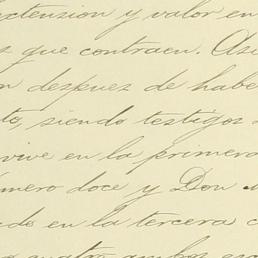 extension y valor en
que contraen. Asi
despues de habe
to, siendo testigos
vive en la primera
mero doce y Don
en la tercera c
cuatro, ambos